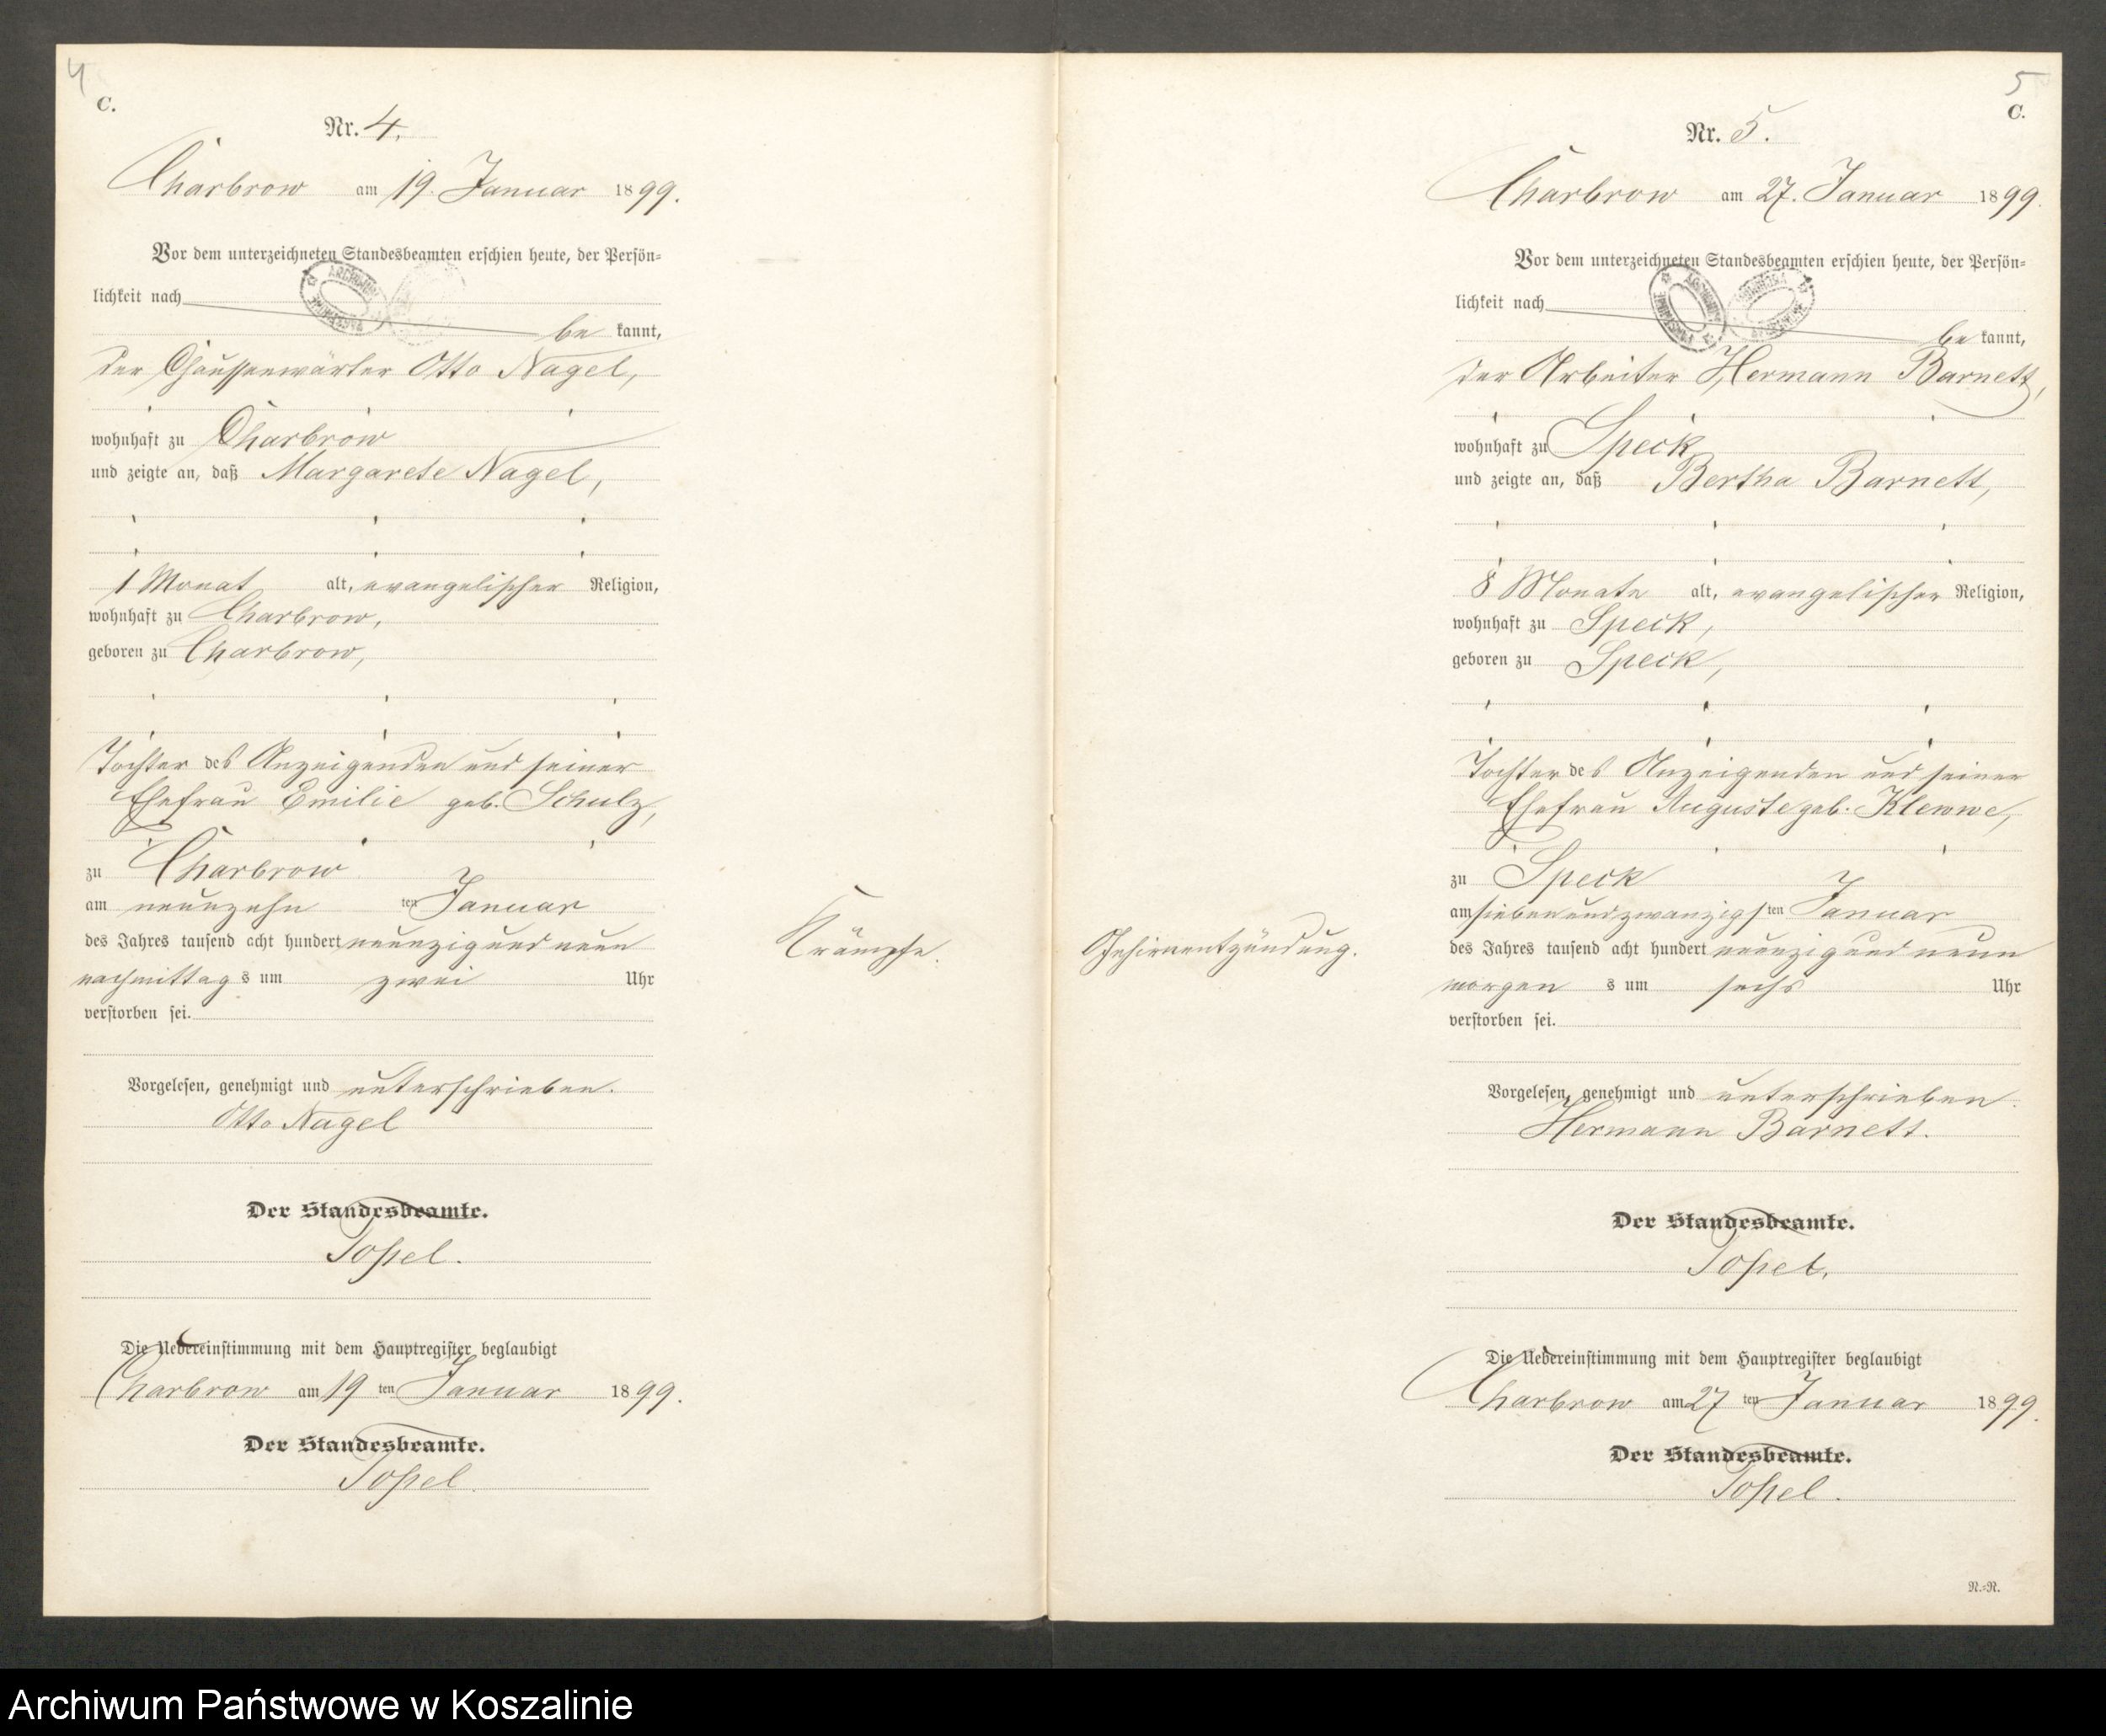 4
C.
Nr. 4.
Charbrow am 19. Januar 1899.
Vor dem unterzeichneten Standesbeamten erschien heute, der Persön=
lichkeit nach
be kannt,
der Chausseewärter Otto Nagel,
wohnhaft zu Charbrow
und zeigte an, daß Margarete Nagel,
1 Monat alt, evangelischer Religion,
wohnhaft zu Charbrow,
geboren zu Charbrow,
Tochter des Anzeigenden und seiner
Ehefrau Emilie geb. Schulz,
zu Charbrow
am neunzehn ten Januar
des Jahres tausend acht hundert neunzig und neun
nachmittag s um zwei Uhr
verstorben sei.
Krämpfe.
Vorgelesen, genehmigt und unterschrieben.
Otto Nagel
Der Standesbeamte.
Die Uebereinstimmung mit dem Hauptregister beglaubigt
Charbrow am 19 ten Januar 1899.
Der Standesbeamte.
5
C.
Nr. 5.
Charbrow am 27. Januar 1899.
Vor dem unterzeichneten Standesbeamten erschien heute, der Persön=
lichkeit nach
be kannt,
der Arbeiter Hermann Barnett,
wohnhaft zu Speck
und zeigte an, daß Bertha Barnett,
8 Monate alt, evangelischer Religion,
wohnhaft zu Speck,
geboren zu Speck,
Tochter des Anzeigenden und seiner
Ehefrau Auguste geb.
zu Speck
am siebenundzwanzigs ten Januar
des Jahres tausend acht hundert neunzig und neun
morgen s um sechs Uhr
verstorben sei.
Gehirnentzündung.
Vorgelesen, genehmigt und unterschrieben.
Hermann Barnett.
Der Standesbeamte.
Die Uebereinstimmung mit dem Hauptregister beglaubigt
Charbrow am 27 ten Januar 1899.
Der Standesbeamte.
N.=N.
Archiwum Państwowe w Koszalinie